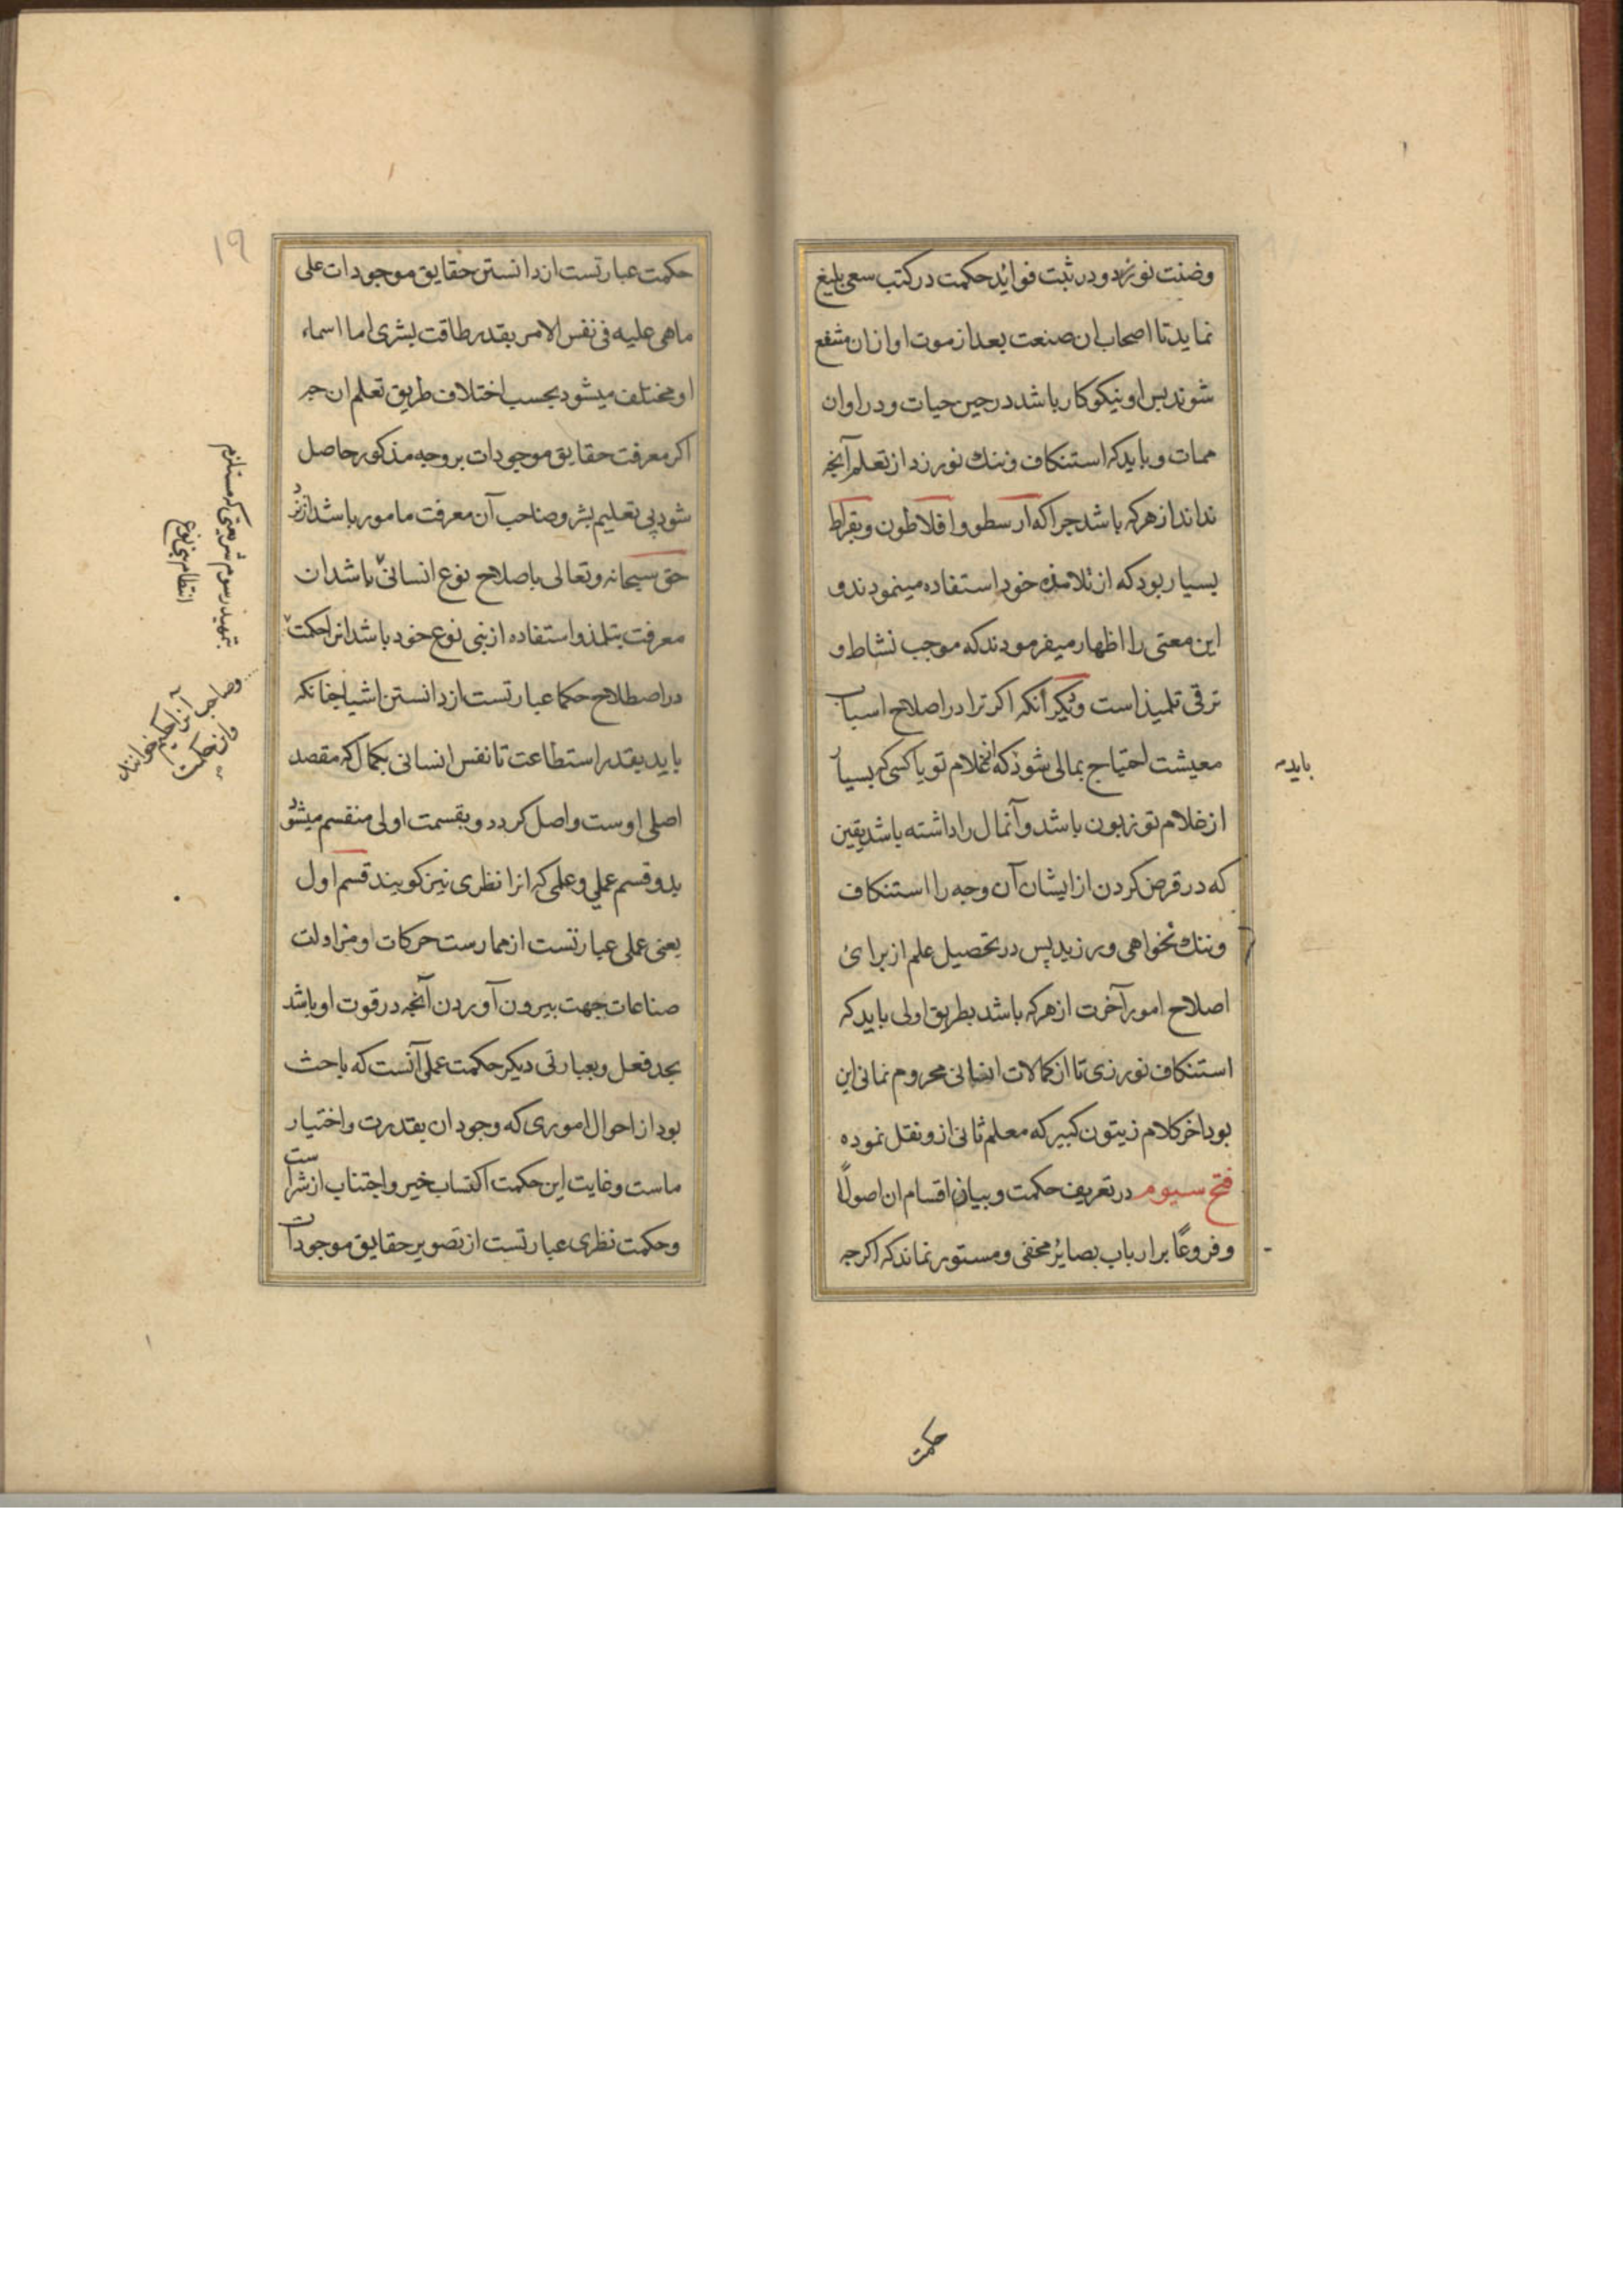 وضنت نورزد و در ثبت فوائد حکمت در کتب سعی بلیغ
نماید تا اصحاب ان صنعت بعد از موت او ازان منتفع
شوند پس او نیکوکار باشد در حین حیات و در اوان
ممات و باید که استنکاف و ننك نورزد از تعلم آنچه
نداند از هرکه باشد چرا که ارسطو و افلاطون و بقراط
بسیار بود که از تلامذه خود استفاده مینمودند و
این معنی را اظهار میفرمودند که موجب نشاط و
ترقی تلمیذ است و دیگر آنکه اکر ترا در اصلاح اسباب
معیشت احتیاج بمالی شود که از غلام تو یا کسی که بسیار
از غلام تو زبون باشد و آنمال را داشته باشد یقین
که در قرض کردن از ایشان آن وجه را استنکاف
و ننك نخواهی ورزید پس در تحصیل علم از برای
اصلاح امور آخرت از هرکه باشد بطریق اولی باید که
استنکاف نورزی تا از کمالات انسانی محروم نمانی این
بود اخر کلام زیتون کبیر که معلم ثانی ازو نقل نموده
فتح سیوم در تعریف حکمت و بیان اقسام ان اصولاً
و فروعاً بر ارباب بصایر مخفی و مستور نماند که اکرچه
باید
حکمت
۱۹
حکمت عبارتست از دانستن حقایق موجودات علی
ماهی علیه فی نفس الامر بقدر طاقت بشری اما اسماء
او مختلف میشود بحسب اختلاف طریق تعلم ان چه
اکر معرفت حقایق موجودات بر وجه مذکور حاصل
شود بی تعلیم بشر و صاحب آن معرفت مامور باشد از نزد
حق سبحانه و تعالی باصلاح نوع انسانی باشد ان
معرفت بتلمذ و استفاده از بنی نوع خود باشد انرا حکمت
در اصطلاح حکما عبارتست از دانستن اشیا چنانکه
باید بقدر استطاعت تا نفس انسانی بکمال که مقصد
اصلی اوست واصل کردد و بقسمت اولی منقسم میشود
بدو قسم عملی و علمی که انرا نظری نیز کویند قسم اول
یعنی عملی عبارتست از ممارست حرکات و مزاولت
صناعات جهت بیرون آوردن آنچه در قوت او باشد
بحد فعل و بعبارتی دیکر حکمت عملی آنست که باحث
بود از احوال اموری که وجود ان بقدرت و اختیار
ماست و غایت این حکمت اکتساب خیر و اجتناب از شر است
و حکمت نظری عبارتست از تصویر حقایق موجودات
بتمهید رسوم شریعتی که مستلزم
انتظام بنی نوع
و صاحب آنرا حکیم خوانند
و ان حکمت